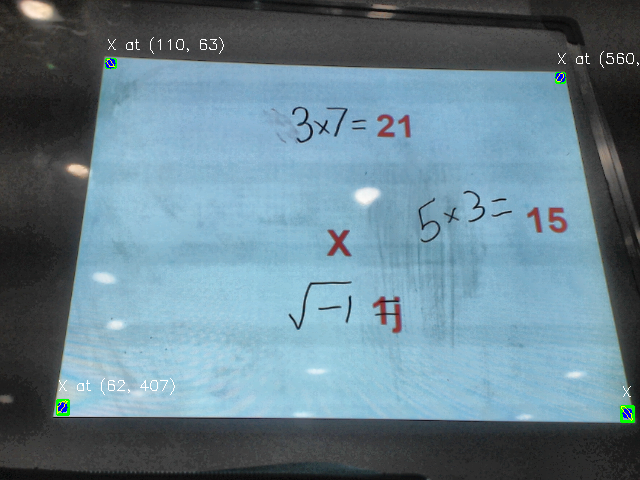 X at (110, 63)
X at (560,
3×7= 21
5×3= 15
X
√-1 = 1j
X at (62, 407)
X